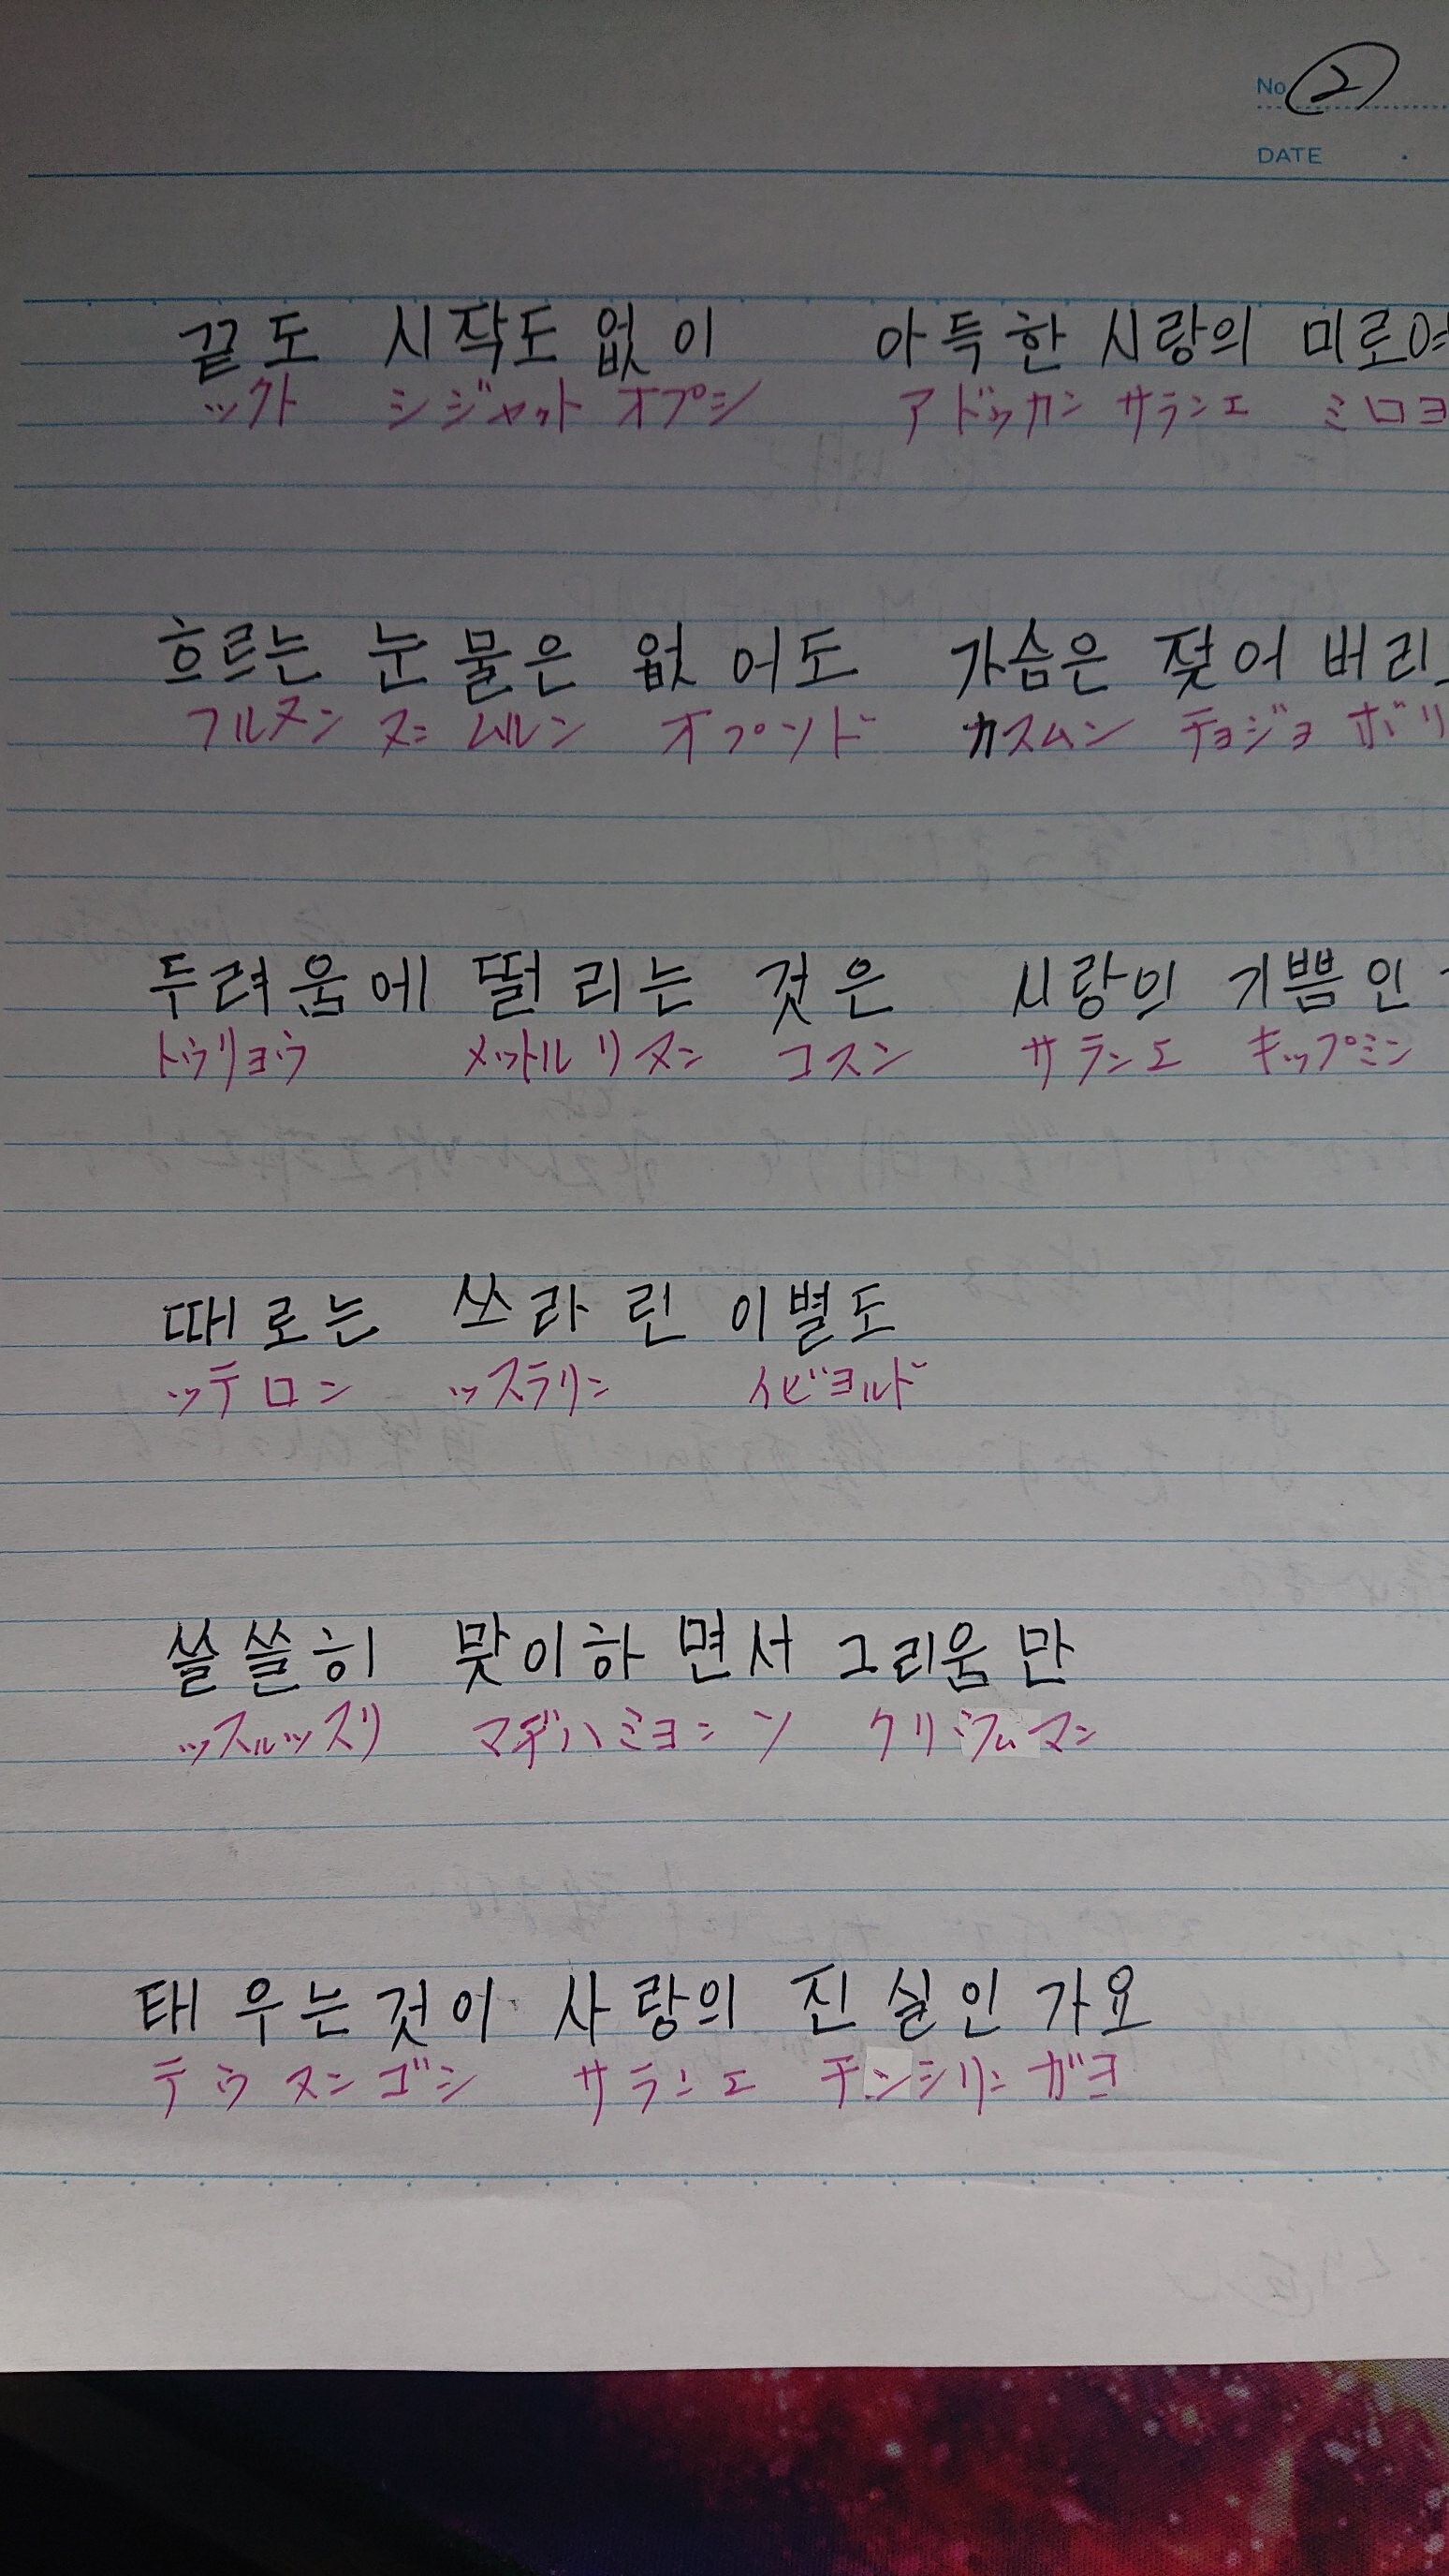 No ②
DATE
끝도 시작도 없이 아득한 사랑의 미로여
ックト シジャット オプシ アドゥカン サランエ ミロヨ
흐르는 눈물은 없어도 가슴은 젖어 버리
フルヌン ヌンムルン オプソド カスムン チョジョ ボリ
두려움에 떨리는 것은 사랑의 기쁨인
トゥリョウ メットルリヌン コスン サランエ キップミン
때로는 쓰라린 이별도
ッテロン ッスラリン イビョルド
쓸쓸히 맞이하면서 그리움만
ッスルッスリ マヂハミョンソ クリウムマン
태우는것이 사랑의 진실인가요
テウヌンゴシ サランエ チンシリンガヨ